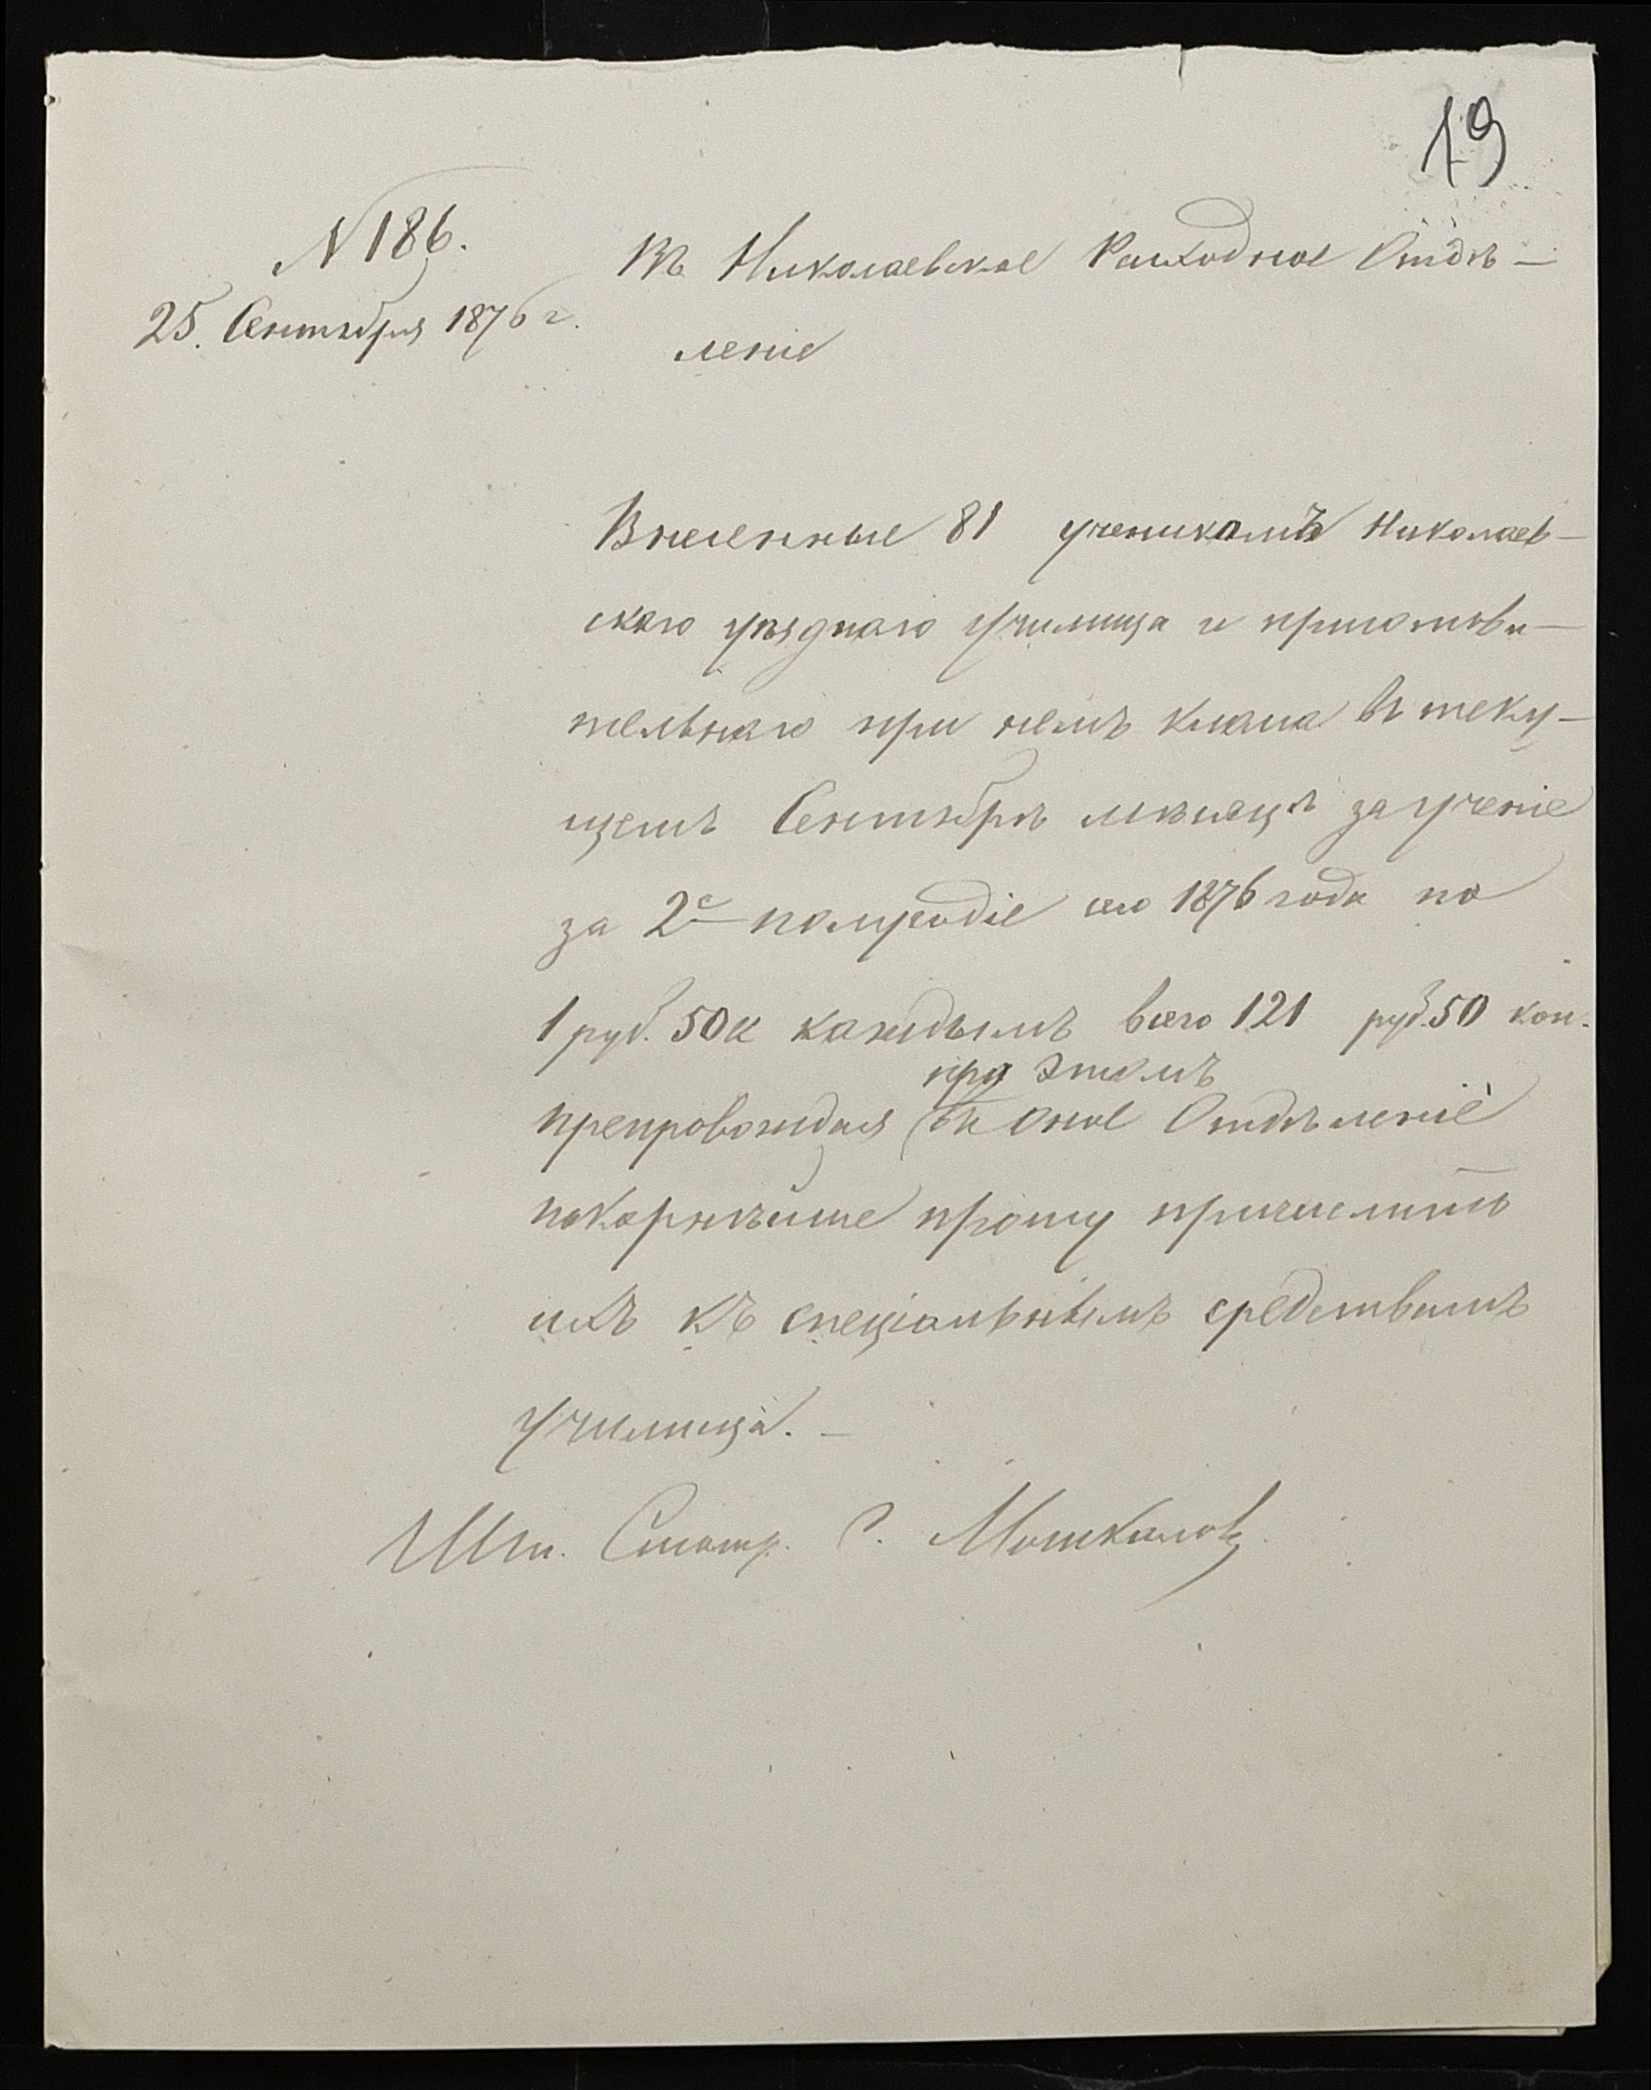 19
N 186.
25. Сентября 1876 г.
Въ Николаевское Расходное Отдѣ-
леніе
Внесенные 81 ученикомъ Николаев-
скаго уѣзднаго училища и приготови-
тельнаго при немъ класса въ теку-
щемъ Сентябрѣ мѣсяцѣ за ученіе
за 2е полугодіе сего 1876 года по
1 руб. 50 к каждымъ всего 121 руб. 50 коп.
при этомъ
препровождая въ оное Отдѣленіе
покорнѣйше прошу причислить
ихъ къ спеціальнымъ средствамъ
училища.-
Шт. Смотр.